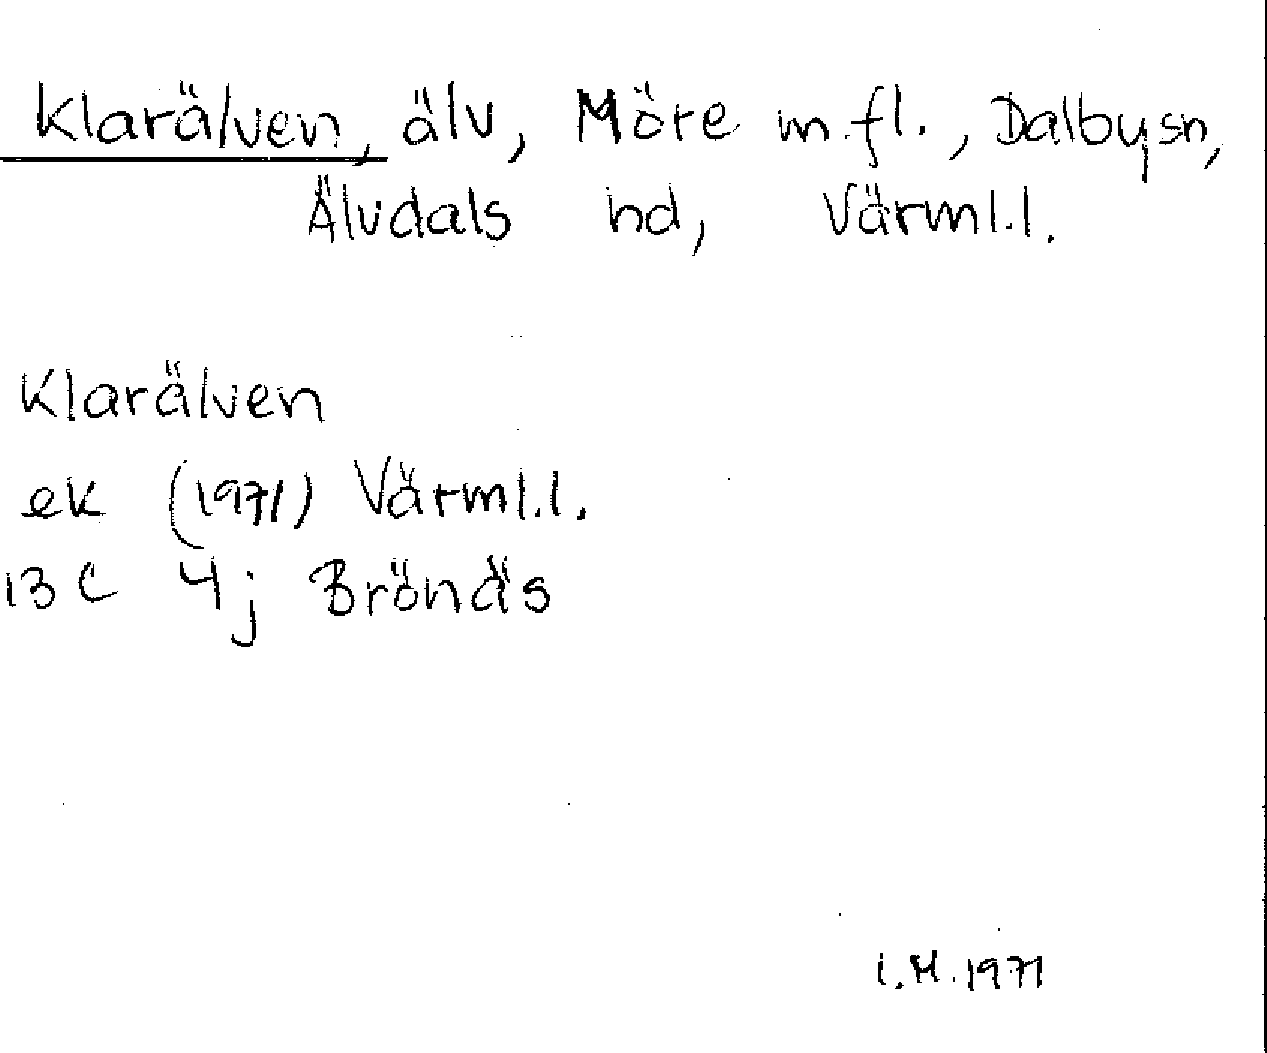 Klarälven, älv, Möre m.fl., Dalby sn,
Älvdals hd, Värml.l.
Klarälven
ek (1971) Värml.l.
13 C 4 j Brönäs
I.M. 1971